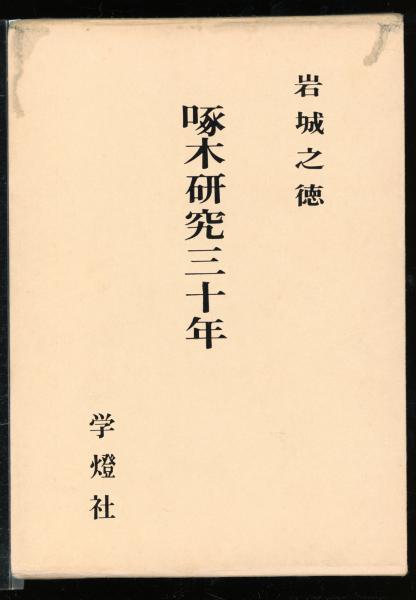 岩城之徳
啄木研究三十年
学燈社